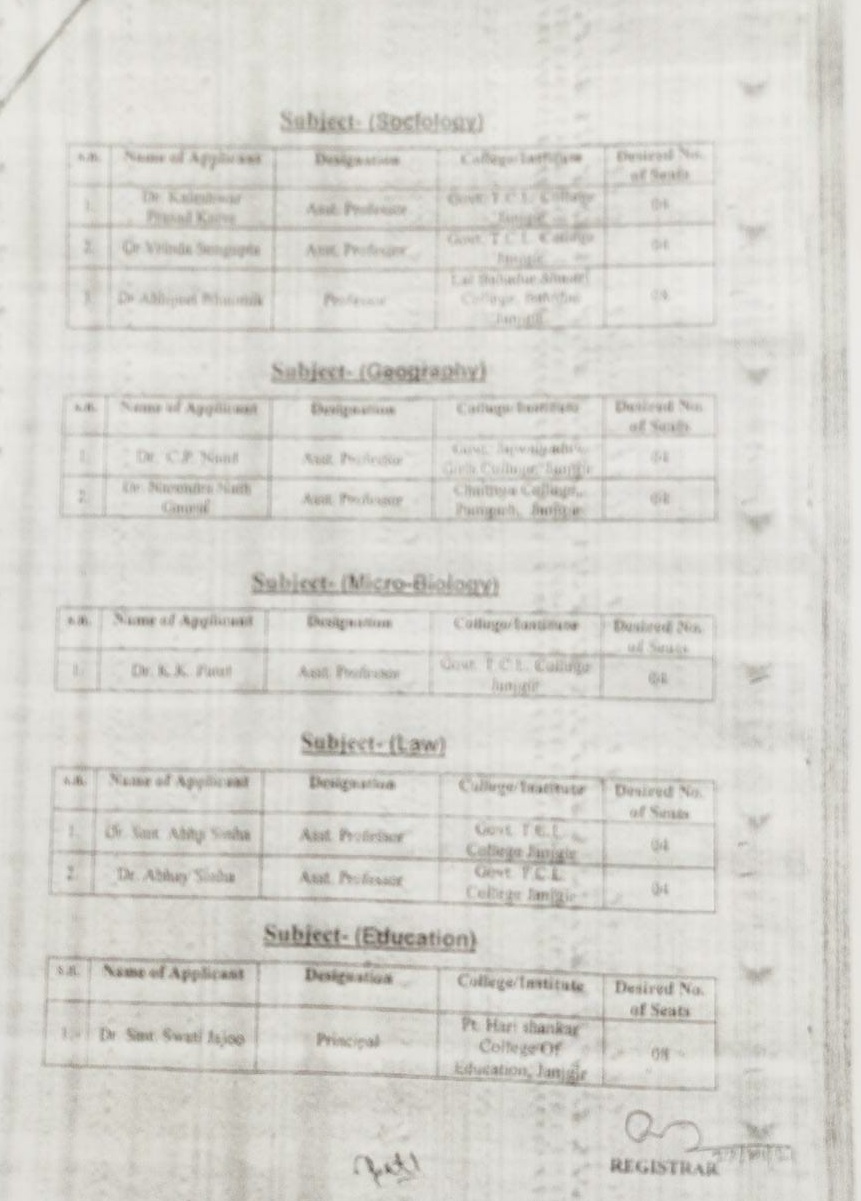 Subject- (Sociology)
s.n. Name of Applicant Designation College/Institute Desired No. of Seats
1. Dr. Asst. Professor Govt. T.C.L. College Janjgir 04
2. Dr Vrinda Sengupta Asst. Professor Govt. T.C.L. College Janjgir 04
3. Dr Abhijeet Bhowmik Professor College, Janjgir 04
Subject- (Geography)
s.n. Name of Applicant Designation College/Institute Desired No. of Seats
1. Dr. C.P. Asst. Professor Govt. Girls College, Janjgir 04
2. Dr. Narendra Nath Asst. Professor College, Janjgir 04
Subject- (Micro-Biology)
s.n. Name of Applicant Designation College/Institute Desired No. of Seats
1. Dr. K.K. Asst. Professor Govt. T.C.L. College Janjgir 04
Subject- (Law)
s.n. Name of Applicant Designation College/Institute Desired No. of Seats
1. Dr. Smt. Sinha Asst. Professor Govt. T.C.L. College Janjgir 04
2. Dr. Abhay Sinha Asst. Professor Govt T.C.L. College Janjgir 04
Subject- (Education)
s.n. Name of Applicant Designation College/Institute Desired No. of Seats
1. Dr Smt. Swati Jajoo Principal Pt. Hari shankar College Of Education, Janjgir 08
REGISTRAR